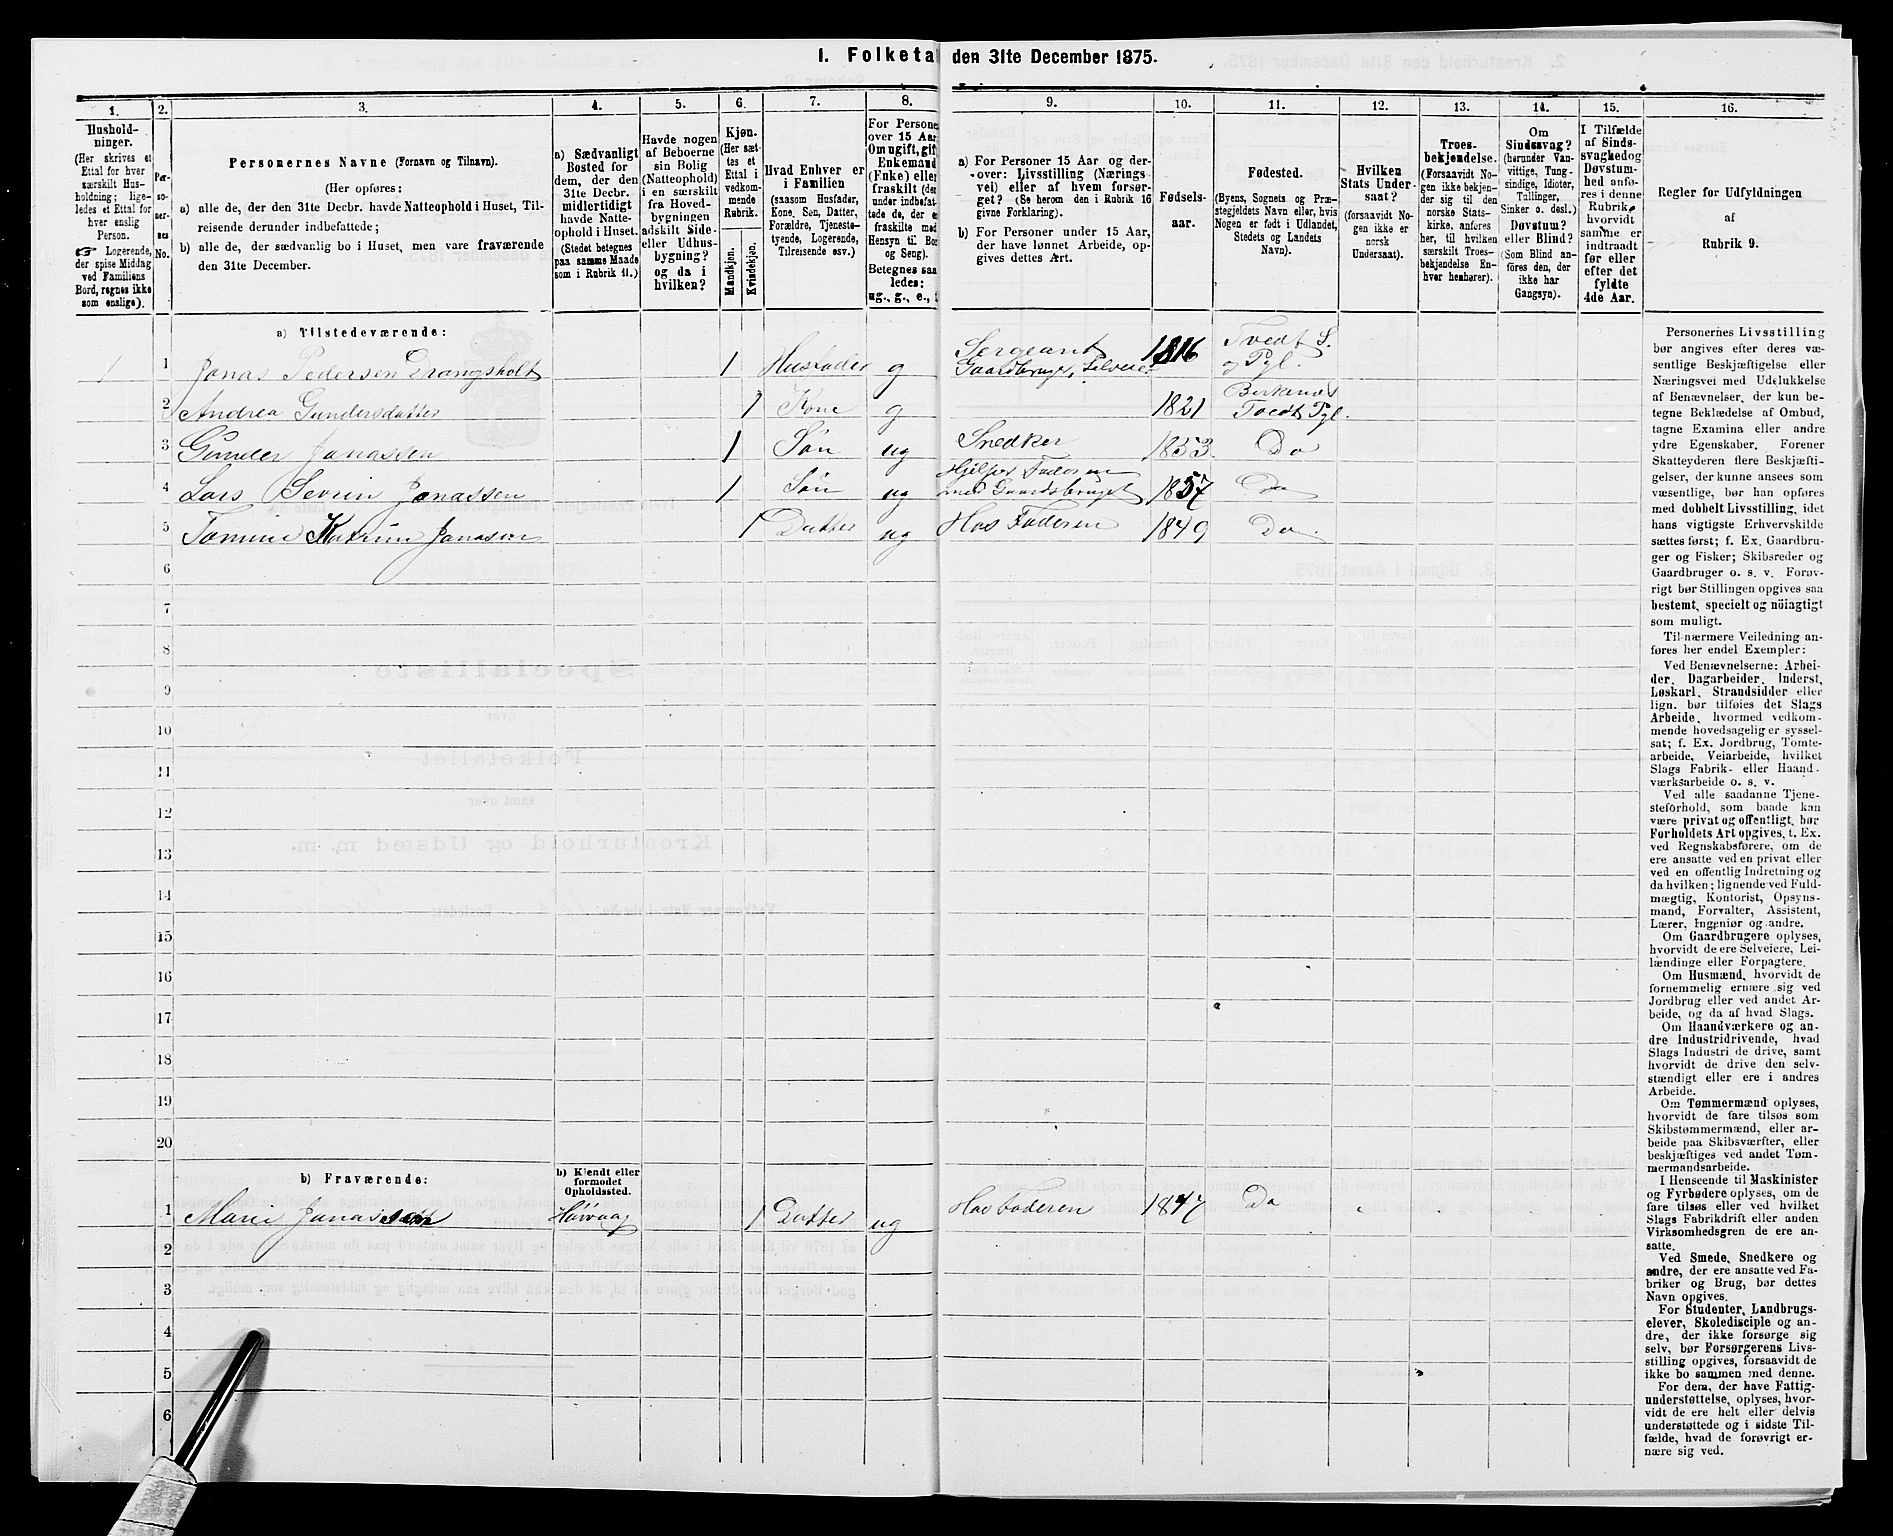 I. Folketa den 31te December 1875.
1.
2.
3.
4.
5.
6.
7.
8.
9.
10.
11.
12.
13.
14.
15.
16.
Hushold-
ninger.
(Her skrives et
Ettal for hver
særskilt Hus-
holdning; lige-
ledes et Ettal for
hver enslig
Person.
☞ Logerende,
der spise Middag
ved Familiens
Bord, regnes ikke
som enslige).
Per-
so-
ner-
nes
No.
Personernes Navne (Fornavn og Tilnavn).
(Her opføres:
a) alle de, der den 31te Decbr. havde Natteophold i Huset, Til-
reisende derunder indbefattede;
b) alle de, der sædvanlig bo i Huset, men vare fraværende
den 31te December.
a) Sædvanligt
Bosted for
dem, der den
31te Decbr.
midlertidigt
havde Natte-
ophold i Huset.
(Stedet betegnes
paa samme Maade
som i Rubrik 11.)
Havde nogen
af Beboerne
sin Bolig
(Natteophold)
i en særskilt
fra Hoved-
bygningen
adskilt Side-
eller Udhus-
bygning?
og da i
hvilken?
Kjøn.
(Her sæt-
tes et
Ettal i
vedkom-
mende
Rubrik.
Mandkjøn.
Kvindekjøn.
Hvad Enhver er
i Familien
(saasom Husfader,
Kone, Søn, Datter,
Forældre, Tjeneste-
tyende, Logerende,
Tilreisende osv.)
For Persone
over 15 Aar
Om ugift, gif
Enkemand
(Enke) elle
fraskilt (de
under indbefat-
tede de, der e
fraskilte med
Hensyn til Bo
og Seng).
Betegnes saa
ledes:
ug., g., e.,
a) For Personer 15 Aar og der-
over: Livsstilling (Nærings-
vei) eller af hvem forsør-
get? (Se herom den i Rubrik 16
givne Forklaring).
b) For Personer under 15 Aar,
der have lønnet Arbeide, op-
gives dettes Art.
Fødsels-
aar.
Fødested.
(Byens, Sognets og Præ-
stegjeldets Navn eller, hvis
Nogen er født i Udlandet,
Stedets og Landets
Navn).
Hvilken
Stats Under-
saat?
(forsaavidt No-
gen ikke er
norsk
Undersaat).
Troes-
bekjendelse.
(Forsaavidt No-
gen ikke bekjen-
der sig til den
norske Stats-
kirke, anføres
her, til hvilken
særskilt Troes-
bekjendelse En-
hver henhører).
Om
Sindssvag?
(herunder Van-
vittige, Tung-
sindige, Idioter,
Tullinger,
Sinker o. desl.)
Døvstum?
eller Blind?
(Som Blind an-
føres den, der
ikke har
Gangsyn).
I Tilfælde
af Sinds-
svaghed og
Døvstum-
hed anfø-
res i denne
Rubrik,
hvorvidt
samme er
indtraadt
før eller
efter det
fyldte
4de Aar.
Regler for Udfyldningen
af
Rubrik 9.
a) Tilstedeværende:
1 1 Jonas Pedersen Drangsholt 1 Husfader g Sergeant Gaardbruger, Selveier 1816 Tvedt S. og Pgl.
2 Andrea Gundersdatter 1 Kone g 1821 Birkenæs Tvedt Pgl.
3 Gunder Jonassen 1 Søn ug Snedker 1853. Do
4 Lars Severin Jonassen 1 Søn ug Hjelper Faderen med Gaardsbruget 1857 Do
5 Tomine Katrine Jonassen 1 Datter ug Hos Faderen 1849 Do.
6
7
8
9
10
11
12
13
14
15
16
17
18
19
20
b) Fraværende:
b) Kjendt eller
formodet
Opholdssted.
1 Marie Jonasdatt Høivaag 1 Datter ug Hos Faderen 1847 Do
2
3
4
5
6
Personernes Livsstilling
bør angives efter deres væ-
sentlige Beskjæftigelse eller
Næringsvei med Udelukkelse
af Benævnelser, der kun be-
tegne Beklædelse af Ombud,
tagne Examina eller andre
ydre Egenskaber. Forener
Skatteyderen flere Beskjæfti-
gelser, der kunne ansees som
væsentlige, bør han opføres
med dobbelt Livsstilling, idet
hans vigtigste Erhvervskilde
sættes først; f. Ex. Gaardbru-
ger og Fisker; Skibsreder og
Gaardbruger o. s. v. Forøv-
rigt bør Stillingen opgives saa
bestemt, specielt og nøiagtigt
som muligt.
Til nærmere Veiledning an-
føres her endel Exempler:
Ved Benævnelserne: Arbei-
der, Dagarbeider, Inderst,
Løskarl, Strandsidder eller
lign. bør tilføies det Slags
Arbeide, hvormed vedkom-
mende hovedsagelig er syssel-
sat; f. Ex. Jordbrug, Tomte-
arbeide, Veiarbeide, hvilket
Slags Fabrik- eller Haand-
værksarbeide o. s. v.
Ved alle saadanne Tjene-
steforhold, som baade kan
være privat og offentligt, bør
Forholdets Art opgives, t. Ex.
ved Regnskabsførere, om de
ere ansatte ved en privat eller
ved en offentlig Indretning og
da hvilken; lignende ved Fuld-
mægtig, Kontorist, Opsyns-
mand, Forvalter, Assistent,
Lærer, Ingeniør og andre.
Om Gaardbrugere oplyses,
hvorvidt de ere Selveiere, Lei-
lændinge eller Forpagtere.
Om Husmænd, hvorvidt de
fornemmelig ernære sig ved
Jordbrug eller ved andet Ar-
beide, og da af hvad Slags.
Om Haandværkere og an-
dre Industridrivende, hvad
Slags Industri de drive, samt
hvorvidt de drive den selv-
stændigt eller ere i andres
Arbeide.
Om Tømmermænd oplyses,
hvorvidt de fare tilsøs som
Skibstømmermænd, eller ar-
beide paa Skibsværfter, eller
beskjæftiges ved andet Tøm-
mermandsarbeide.
I Henseende til Maskinister
og Fyrbødere oplyses, om de
fare tilsøs eller ved hvilket
Slags Fabrikdrift eller anden
Virksomhedsgren de ere an-
satte.
Ved Smede, Snedkere og
andre, der ere ansatte ved Fa-
briker og Brug, bør dettes
Navn opgives.
For Studenter, Landbrugs-
elever, Skoledisciple og an-
dre, der ikke forsørge sig
selv, bør Forsørgerens Livs-
stilling opgives, forsaavidt de
ikke bo sammen med denne.
For dem, der have Fattig-
understøttelse, oplyses, hvor-
vidt de ere helt eller delvis
understøttede og i sidste Til-
fælde, hvad de forøvrigt er-
nære sig ved.